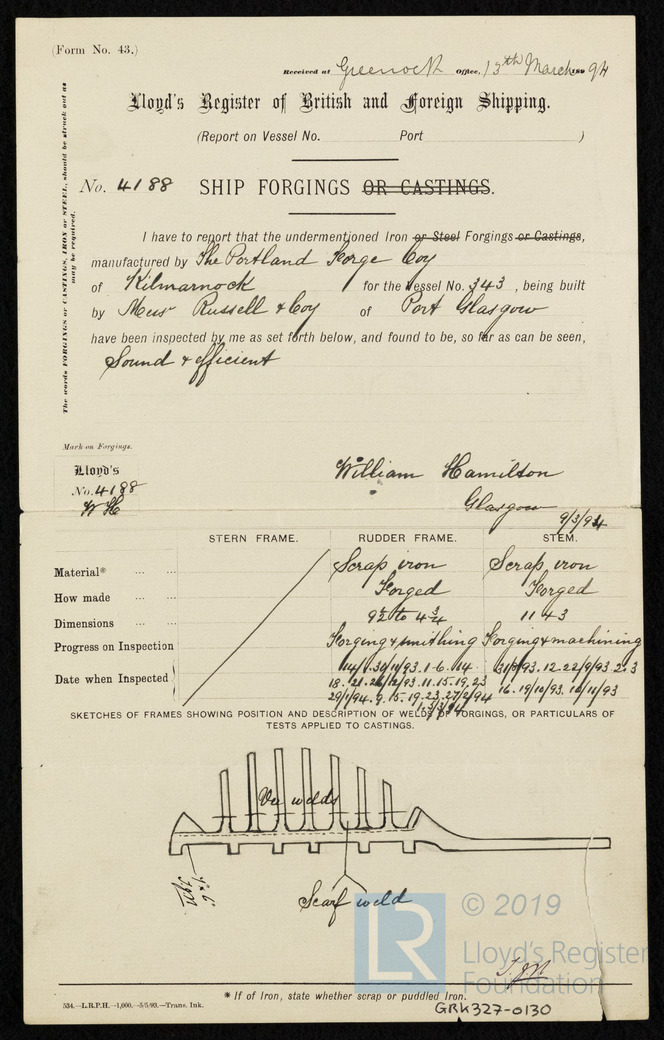 (Form No. 43.)
Received at Greenock Office, 13th March 1894
Lloyd's Register of British and Foreign Shipping.
(Report on Vessel No. Port )
The words FORGINGS or CASTINGS, IRON or STEEL, should be struck out as may be required.
No. 4188 SHIP FORGINGS OR CASTINGS.
I have to report that the undermentioned Iron or Steel Forgings or Castings,
manufactured by The Portland Forge Coy
of Kilmarnock for the Vessel No. 343, being built
by Messrs Russell & Coy of Port Glasgow
have been inspected by me as set forth below, and found to be, so far as can be seen,
Sound & efficient
Mark on Forgings.
Lloyd's
No. 4188
WH
William Hamilton
Glasgow
9/3/94
STERN FRAME. RUDDER FRAME. STEM.
Material* Scrap iron Scrap iron
How made Forged Forged
Dimensions to 4 3/4 11
Progress on Inspection Forging & smithing Forging & machining
Date when Inspected
18. 21. 26/12/93. 11. 15. 19. 23 12. 22/9/93
29/1/94. 9. 15. 19. 23. 27/2/94 16. 19/10/93. 16/11/93
SKETCHES OF FRAMES SHOWING POSITION AND DESCRIPTION OF WELDS OF FORGINGS, OR PARTICULARS OF
TESTS APPLIED TO CASTINGS.
Vee welds
Scarf weld
© 2019
LR
Lloyd's Register
Foundation
* If of Iron, state whether scrap or puddled Iron.
534.—L.R.P.H.—1,000.—5/5/93.—Trans. Ink.
GRK327-0130